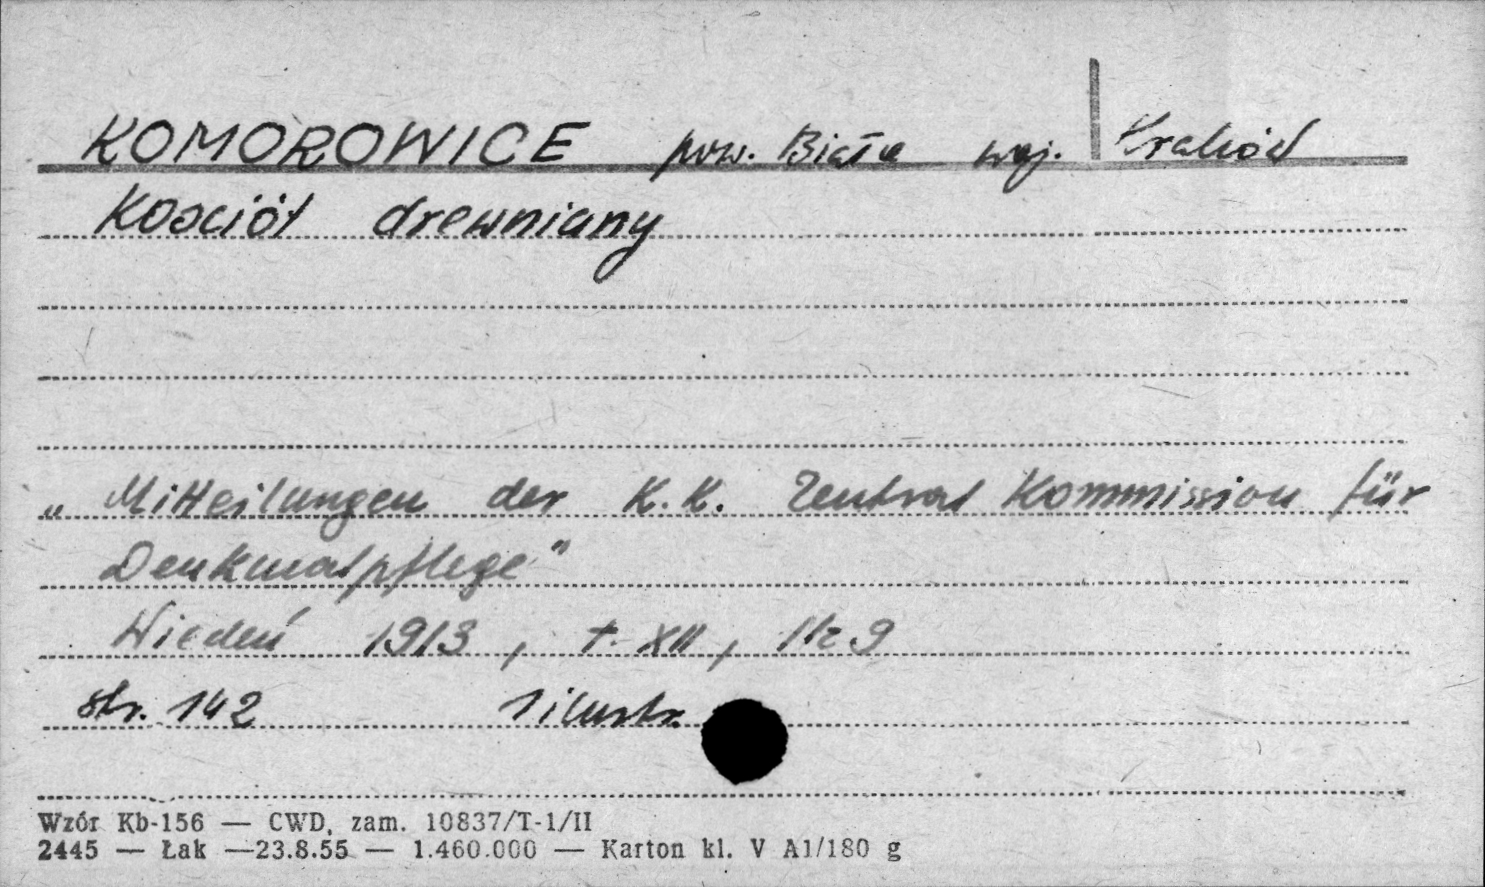 KOMOROWICE pow. Biała woj. Kraków
Kościół drewniany
„Mitteilungen der K.K. Zentral Kommission für
Denkmalpflege"
Wiedeń 1913, t. XII, Nr 9
str. 142 1 ilustr.
Wzór Kb-156 — CWD, zam. 10837/T-1/II
2445 — Łak —23.8.55 — 1.460.000 — Karton kl. V A1/180 g